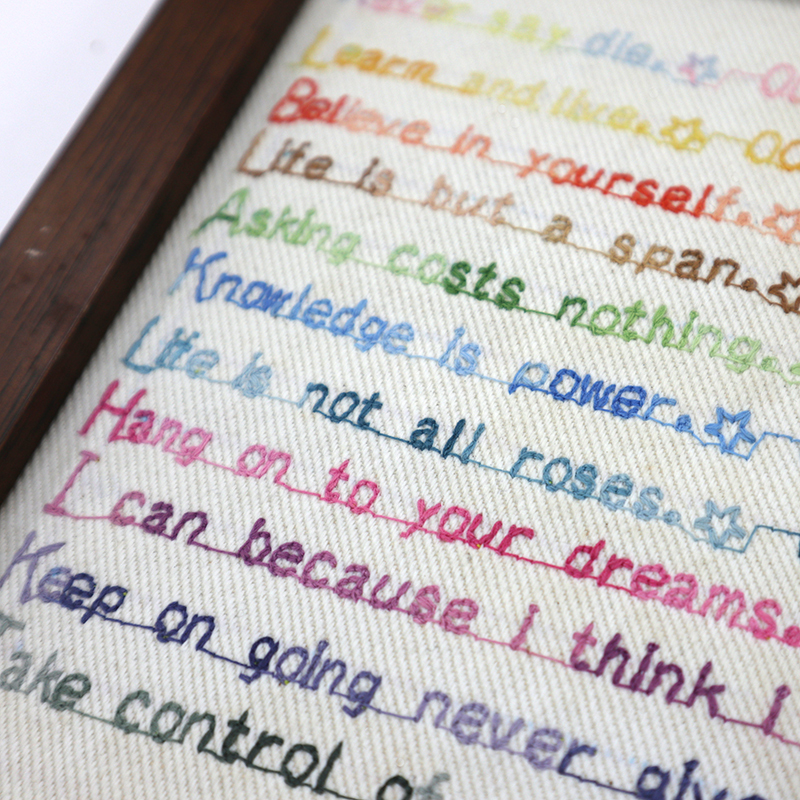 Never say die.☆
Learn and live.☆
Believe in yourself.☆
Life is but a span.☆
Asking costs nothing.
Knowledge is power.☆
Life is not all roses.☆
Hang on to your dreams.
I can because i think i
Keep on going never give
Take control of